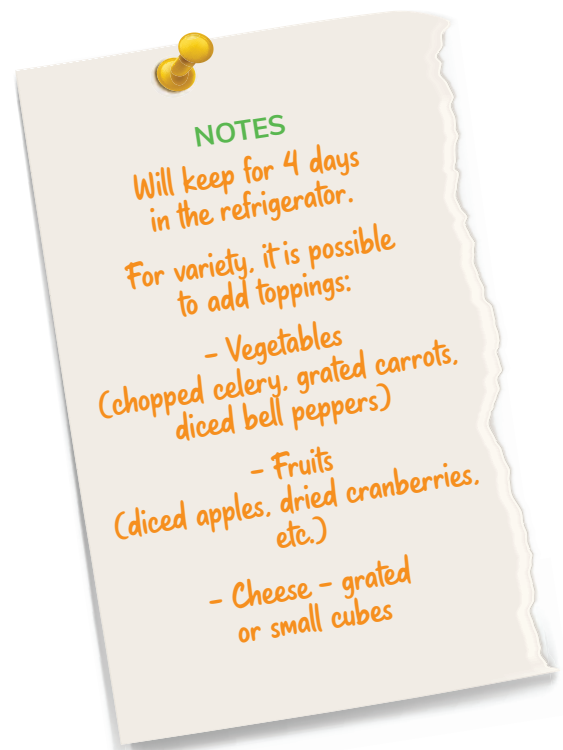 NOTES
Will keep for 4 days
in the refrigerator.
For variety, it is possible
to add toppings:
- Vegetables
(chopped celery, grated carrots,
diced bell peppers)
- Fruits
(diced apples, dried cranberries,
etc.)
- Cheese - grated
or small cubes